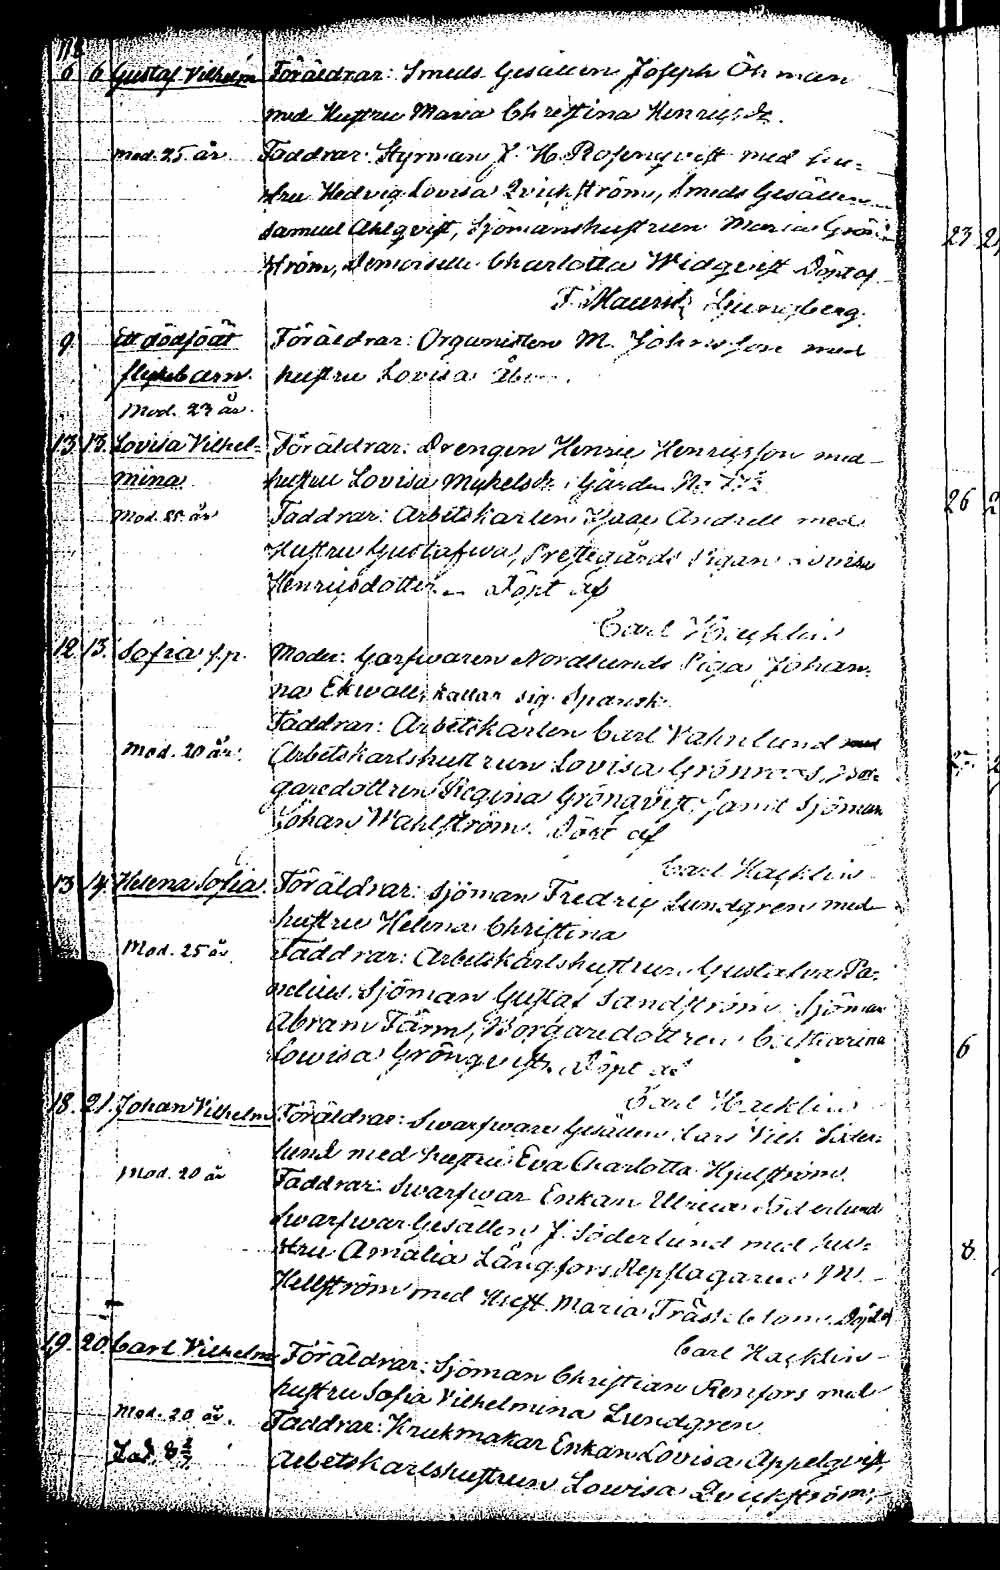 6 6 Gustaf Vilhelm Föräldrar: Smeds Gesällen Joseph Öhman
med Hustru Maria Christina Henricsdr.
Mod. 25 år Faddrar: Styrman J. H. Rosenqvist med hu-
stru Hedvig Lovisa Qvickström, Smeds Gesällen
Samuel Ahlqvist, Sjömanshustrun Maria Grön-
ström, Demoiselle Charlotta Widqvist Döpt af
F. Maurits Ljungberg.
9 Ett dödfödt Föräldrar: Organisten M. Johnsson med
flickebarn. hustru Lovisa
Mod. 23 år.
13. 13. Lovisa Vilhel- Föräldrar: Drengen Henric Henricsson med
mina hustru Lovisa Mickelsdr. i Gården No
Mod. 25 år Faddrar: Arbetskarlen Isaac Andrell med
Hustru Gustafwa, Prestegårds Pigan Lovisa
Henricsdotter. Döpt af
Carl Hacklin
12. 13. Sofia f.p. Moder: Garfwaren Nordlunds Piga Johan-
na Ekwall, kallar sig Spansk.
Faddrar: Arbetskarlen Carl Vahnlund med
Mod. 20 år. Arbetskarlshustrun Lovisa Grönroos, Bor-
garedottren Regina Grönqvist, samt Sjöman
Johan Wahlström. Döpt af
Carl Hacklin
13. 14. Helena Sofia. Föräldrar: Sjöman Fredric Lundgren med
hustru Helena Christina
Mod. 25 år Faddrar: Arbetskarlshustrun Gustafva Pa-
nelius. Sjöman Gustaf Sandström Sjöman
Abram Färm, Borgaredottren Catharina
Lowisa Grönqvist. Döpt af
Carl Hacklin
18. 21. Johan Vilhelm Föräldrar: Swarfware Gesällen Carl Vilh. Söder-
lund med hustru Eva Charlotta Hjulström.
Mod. 20 år Faddrar: Swarfwar Enkan Ulrica Söderlund
Swarfwar Gesällen J. Söderlund med hu-
stru Amalia Långfors, Repslagaren M.
Hellström med Hust. Maria Döpt af
Carl Hacklin
19. 20. Carl Vilhelm Föräldrar: Sjöman Christian Renfors med
hustru Sofia Vilhelmina Lundgren
Mod. 20 år. Faddrar: Krukmakar Enkan Lovisa Appelqvist,
Arbetskarlshustrun Lowisa Qvickström,
23
26
6
8